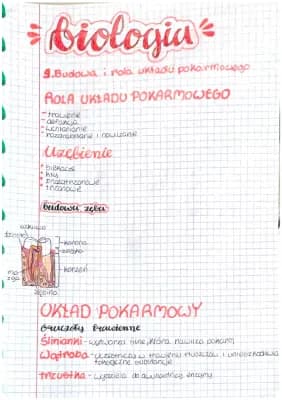 biologia
9. Budowa i rola układu pokarmowego
ROLA UKŁADU POKARMOWEGO
- trawienie
- defekacja
- wchłanianie
- rozdrabnianie i
Uzębienie
• siekacze
• kły
• przedtrzonowe
• trzonowe
budowa zęba
szkliwo
korona
szyjka
korzeń
UKŁAD POKARMOWY
Gruczoły trawienne
Ślinianki - wytwarza ślinę, która nawilża pokarm
Wątroba - uczestniczy w trawieniu tłuszczów i unieszkodliwia
toksyczne substancje
Trzustka - wydziela do dwunastnicy enzymy